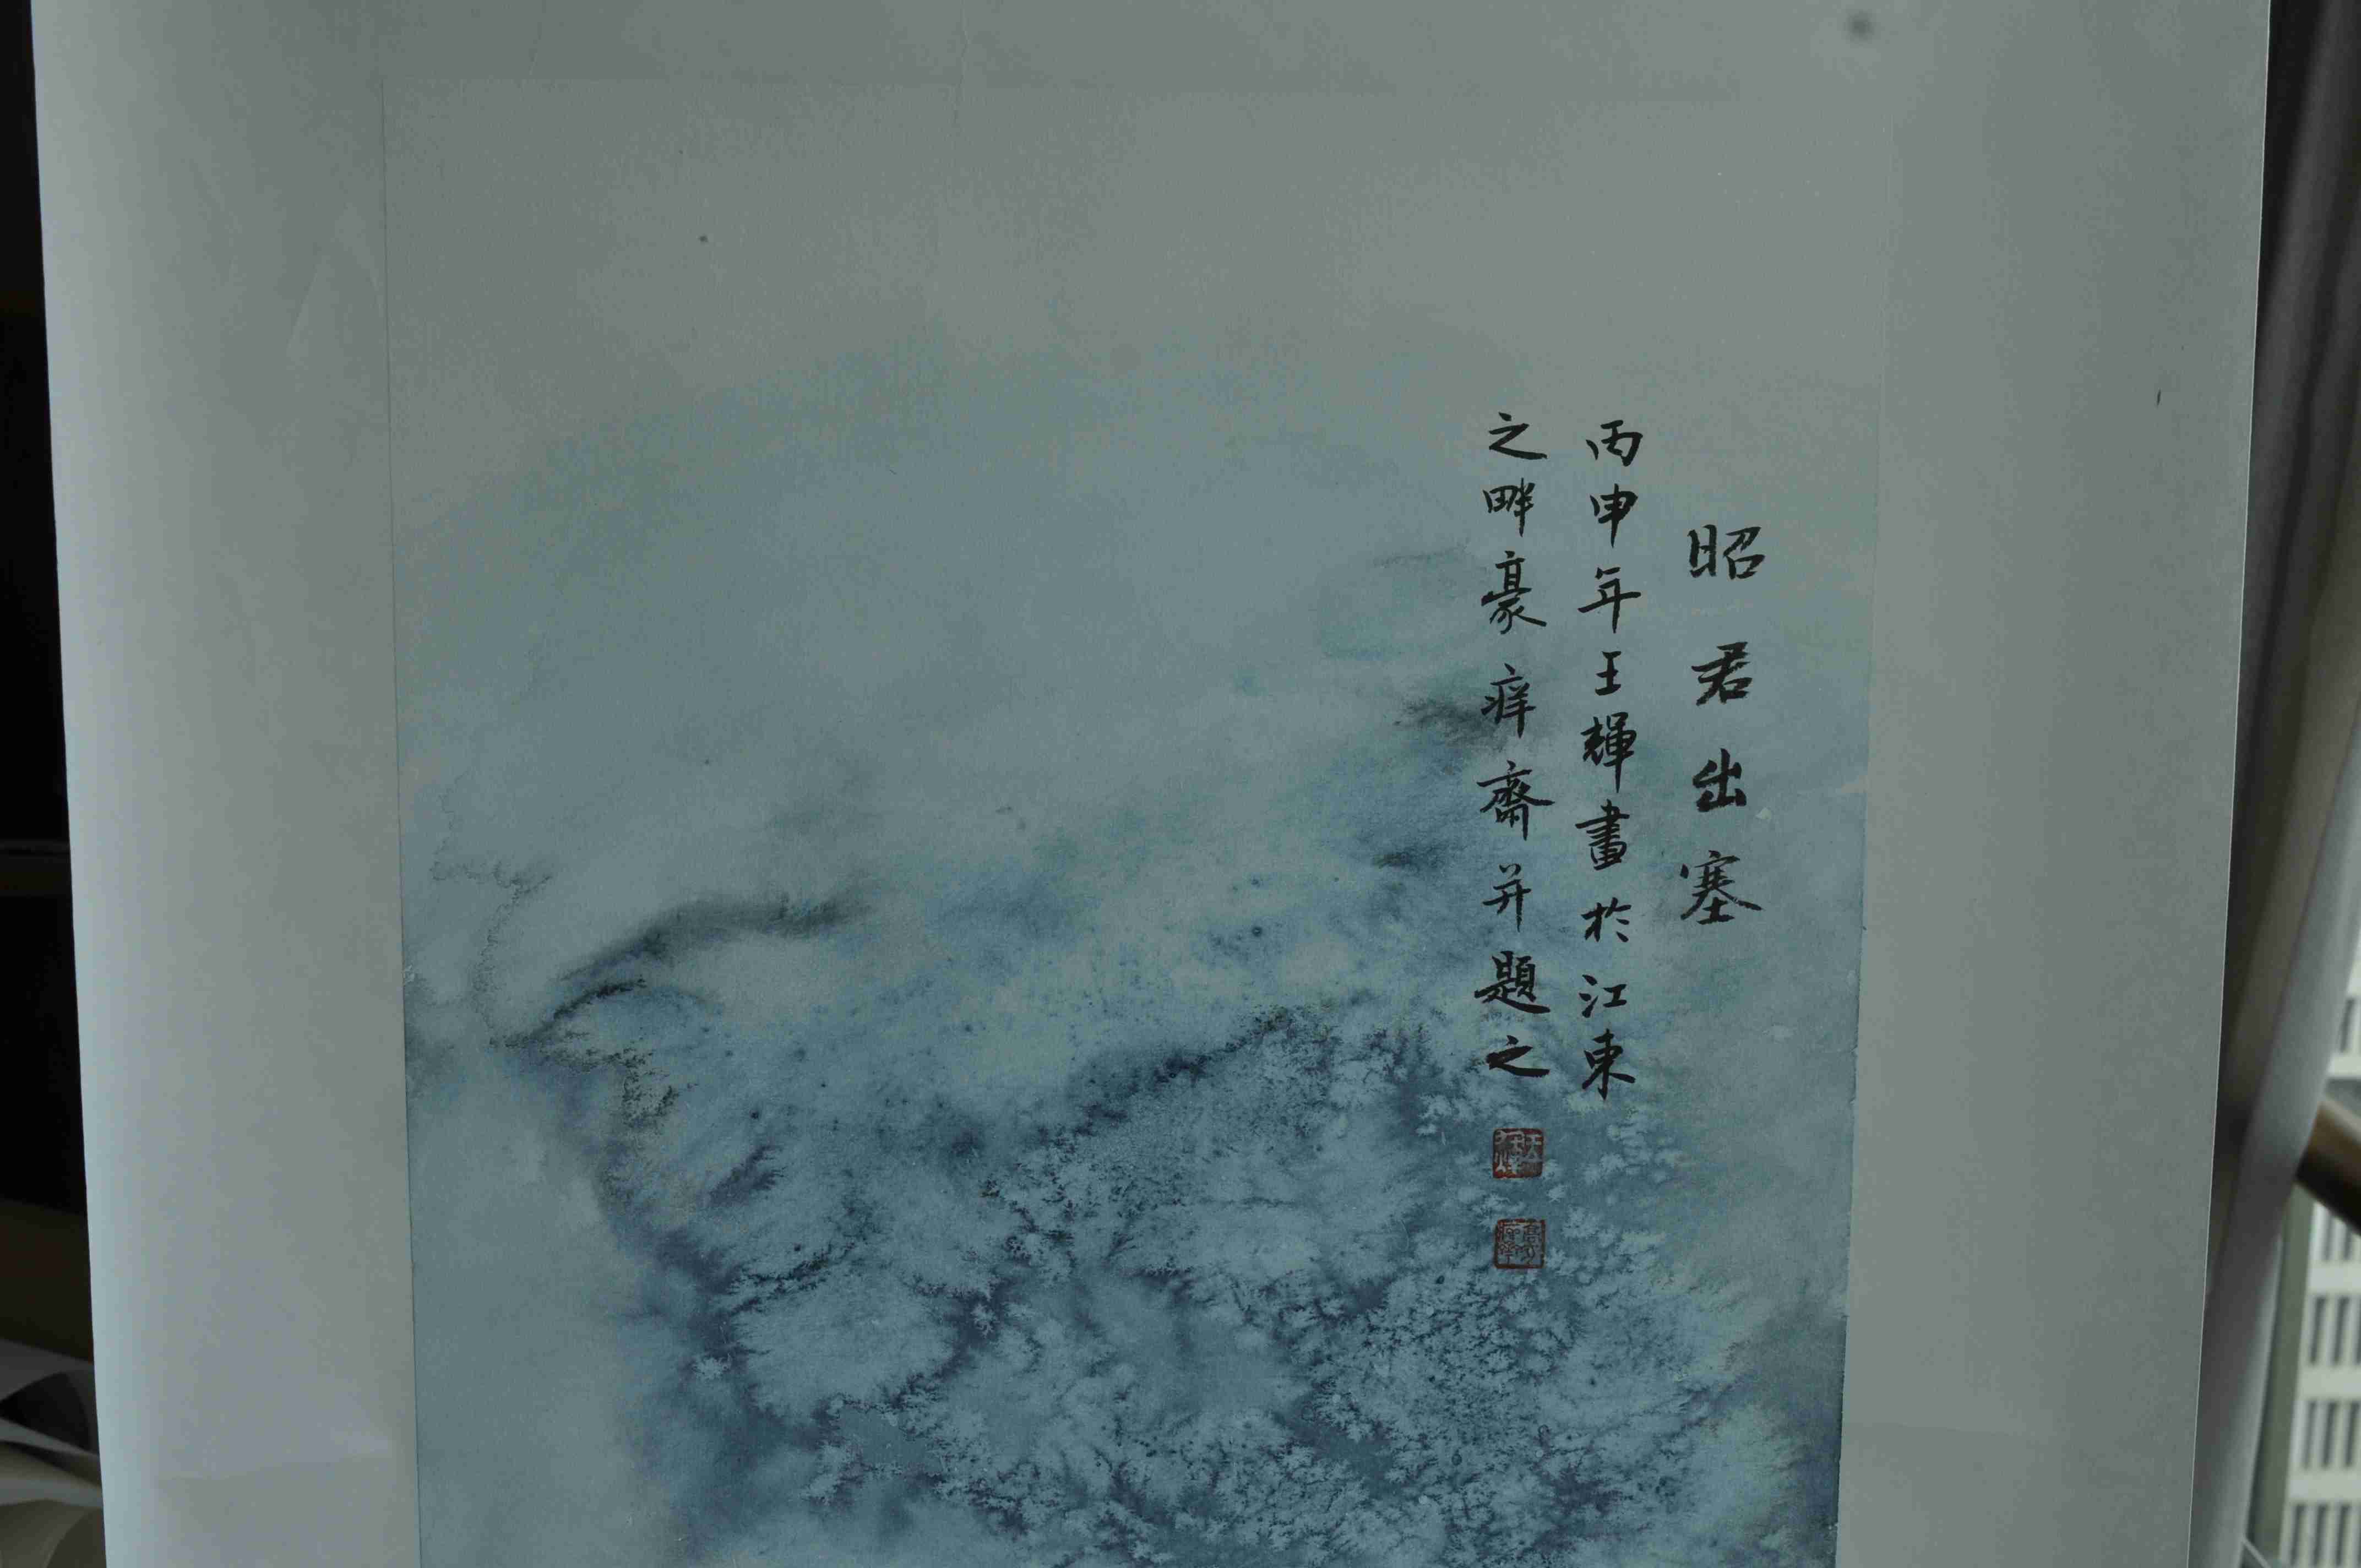 昭君出塞
丙申年王輝畫於江東
之畔豪痒齋并題之